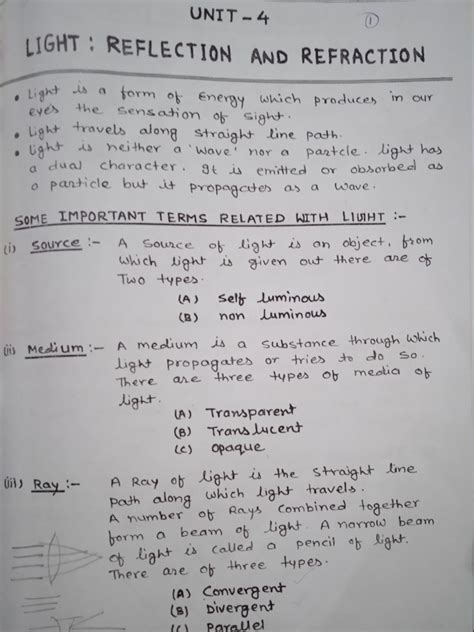 UNIT-4
1
LIGHT: REFLECTION AND REFRACTION
• Light is a form of Energy which produces in our
eyes the sensation of sight.
• Light travels along straight line path.
• Light is neither a 'wave' nor a partcle. light has
a dual character. It is emitted or absorbed as
a particle but it propagates as a wave.
SOME IMPORTANT TERMS RELATED WITH LIGHT :-
(i) Source :- A Source of light is an object, from
which light is given out there are of
Two types.
(A) Self luminous
(B) non luminous
(ii) Medium :- A medium is a substance through which
light propagates or tries to do so.
There are three types of media of
light.
(A) Transparent
(B) Translucent
(C) opaque
(iii) Ray :- A Ray of light is the straight line
path along which light travels.
A number of Rays combined together
form a beam of light. A narrow beam
of light is called a pencil of light.
There are of three types.
(A) Convergent
(B) Divergent
(C) Parallel